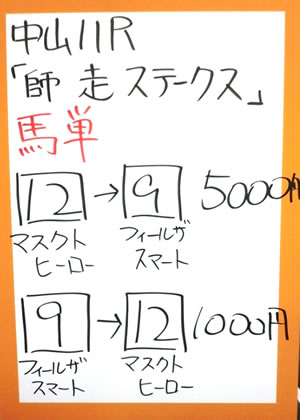 中山11R
「師走ステークス」
馬単
12→9 5000円
マスクト フィールザ
ヒーロー スマート
9→12 1000円
フィールザ マスクト
スマート ヒーロー